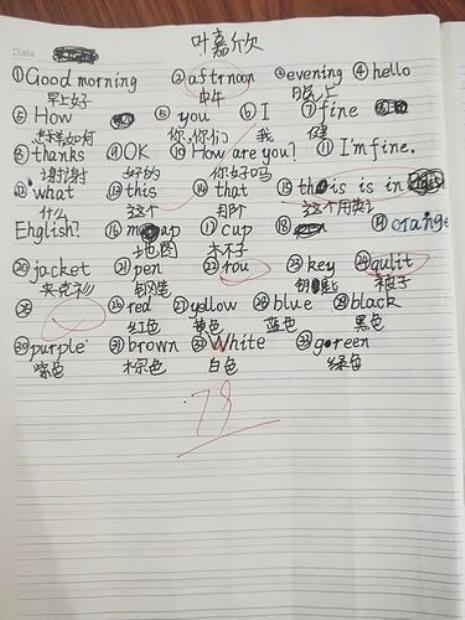 Date
叶嘉欣
①Good morning ②aftrnoon ③evening ④hello
早上好 中午 晚上
⑤How ⑤you ⑥I ⑦fine
怎样如何 你,你们 我 健
⑧thanks ⑨OK ⑩How are you? ⑪I'm fine.
谢谢 好的 你好吗
⑫what ⑬this ⑭that ⑮this is in
什么 这个 那个 这个用英
Ehglish? ⑯map ⑰cup ⑱ ⑲orange
地图 木不子
⑳jacket ㉑pen ㉒rou ㉓key ㉔qulit
夹克衫 钢笔 钥匙 被子
㉕ ㉖red ㉗yollow ㉘blue ㉙black
红色 黄色 蓝色 黑色
㉚purple ㉛brown ㉜White ㉝goreen
紫色 棕色 白色 绿色
78